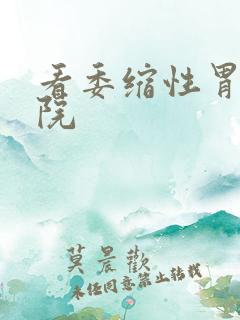 看委缩性胃
院
莫晨欢
未经同意禁止转载